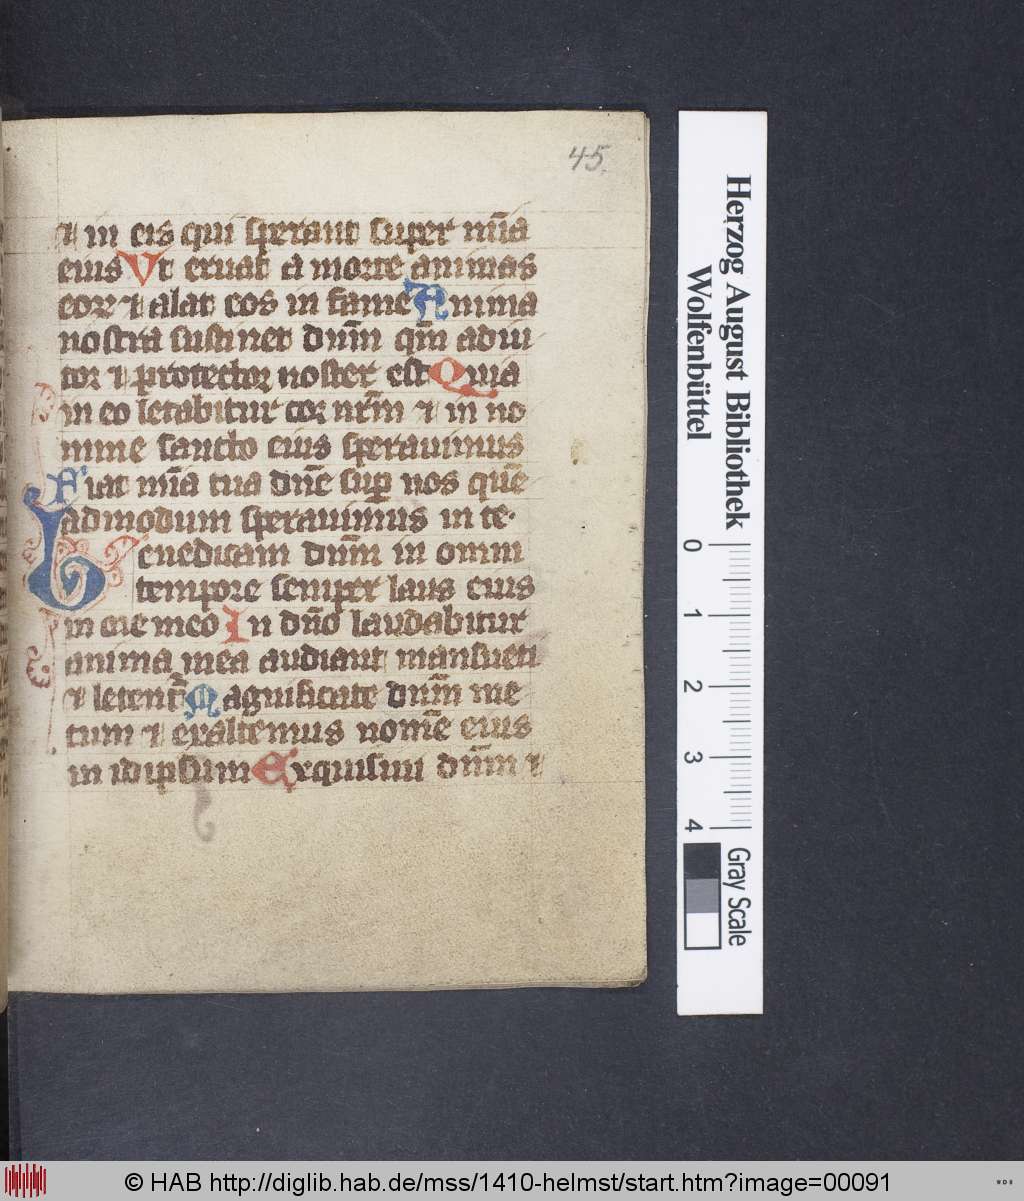 45.
⁊ in eis qui sperant super mīa
eius Vt eruat a morte animas
eorꝝ ⁊ alat eos in fame Anima
nostra sustinet dnm̄ qm̄ adiu
tor ⁊ protector noster est Quia
in eo letabitur cor nrm̄ ⁊ in no
mine sancto eius sperauimus
Fiat mīa tua dnē sup̄ nos quē
admodum sperauimus in te·
Benedicam dnm̄ in omni
tempore semper laus eius
in ore meo In dnō laudabitur
anima mea audiant mansueti
⁊ letent᷑ Magnificate dnm̄ me
cum ⁊ exaltemus nomē eius
in idipsum Exquisiui dnm̄ ⁊
Herzog August Bibliothek
Wolfenbüttel
0
1
2
3
4
Gray Scale
© HAB http://diglib.hab.de/mss/1410-helmst/start.htm?image=00091